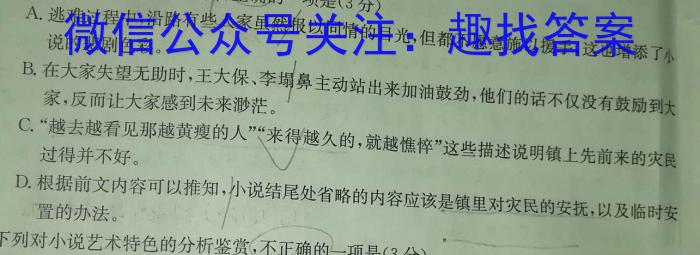 一项是(3分)
A. 逃难过程中,沿路有些人家虽然报以同情的目光,但都不愿意施以援手,这也增添了小
说的悲剧色彩。
微信公众号关注:趣找答案
B. 在大家失望无助时,王大保、李塌鼻主动站出来加油鼓劲,他们的话不仅没有鼓励到大
家,反而让大家感到未来渺茫。
C. “越去越看见那越黄瘦的人”“来得越久的,就越憔悴”这些描述说明镇上先前来的灾民
过得并不好。
D. 根据前文内容可以推知,小说结尾处省略的内容应该是镇里对灾民的安抚,以及临时安
置的办法。
下列对小说艺术特色的分析鉴赏,不正确的一项是(3分)